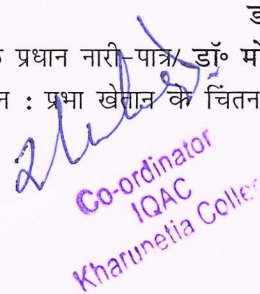 प्रधान नारी-पात्र/ डॉ॰
: प्रभा खेतान के चिंतन
Co-ordinator
IQAC
Kharupetia